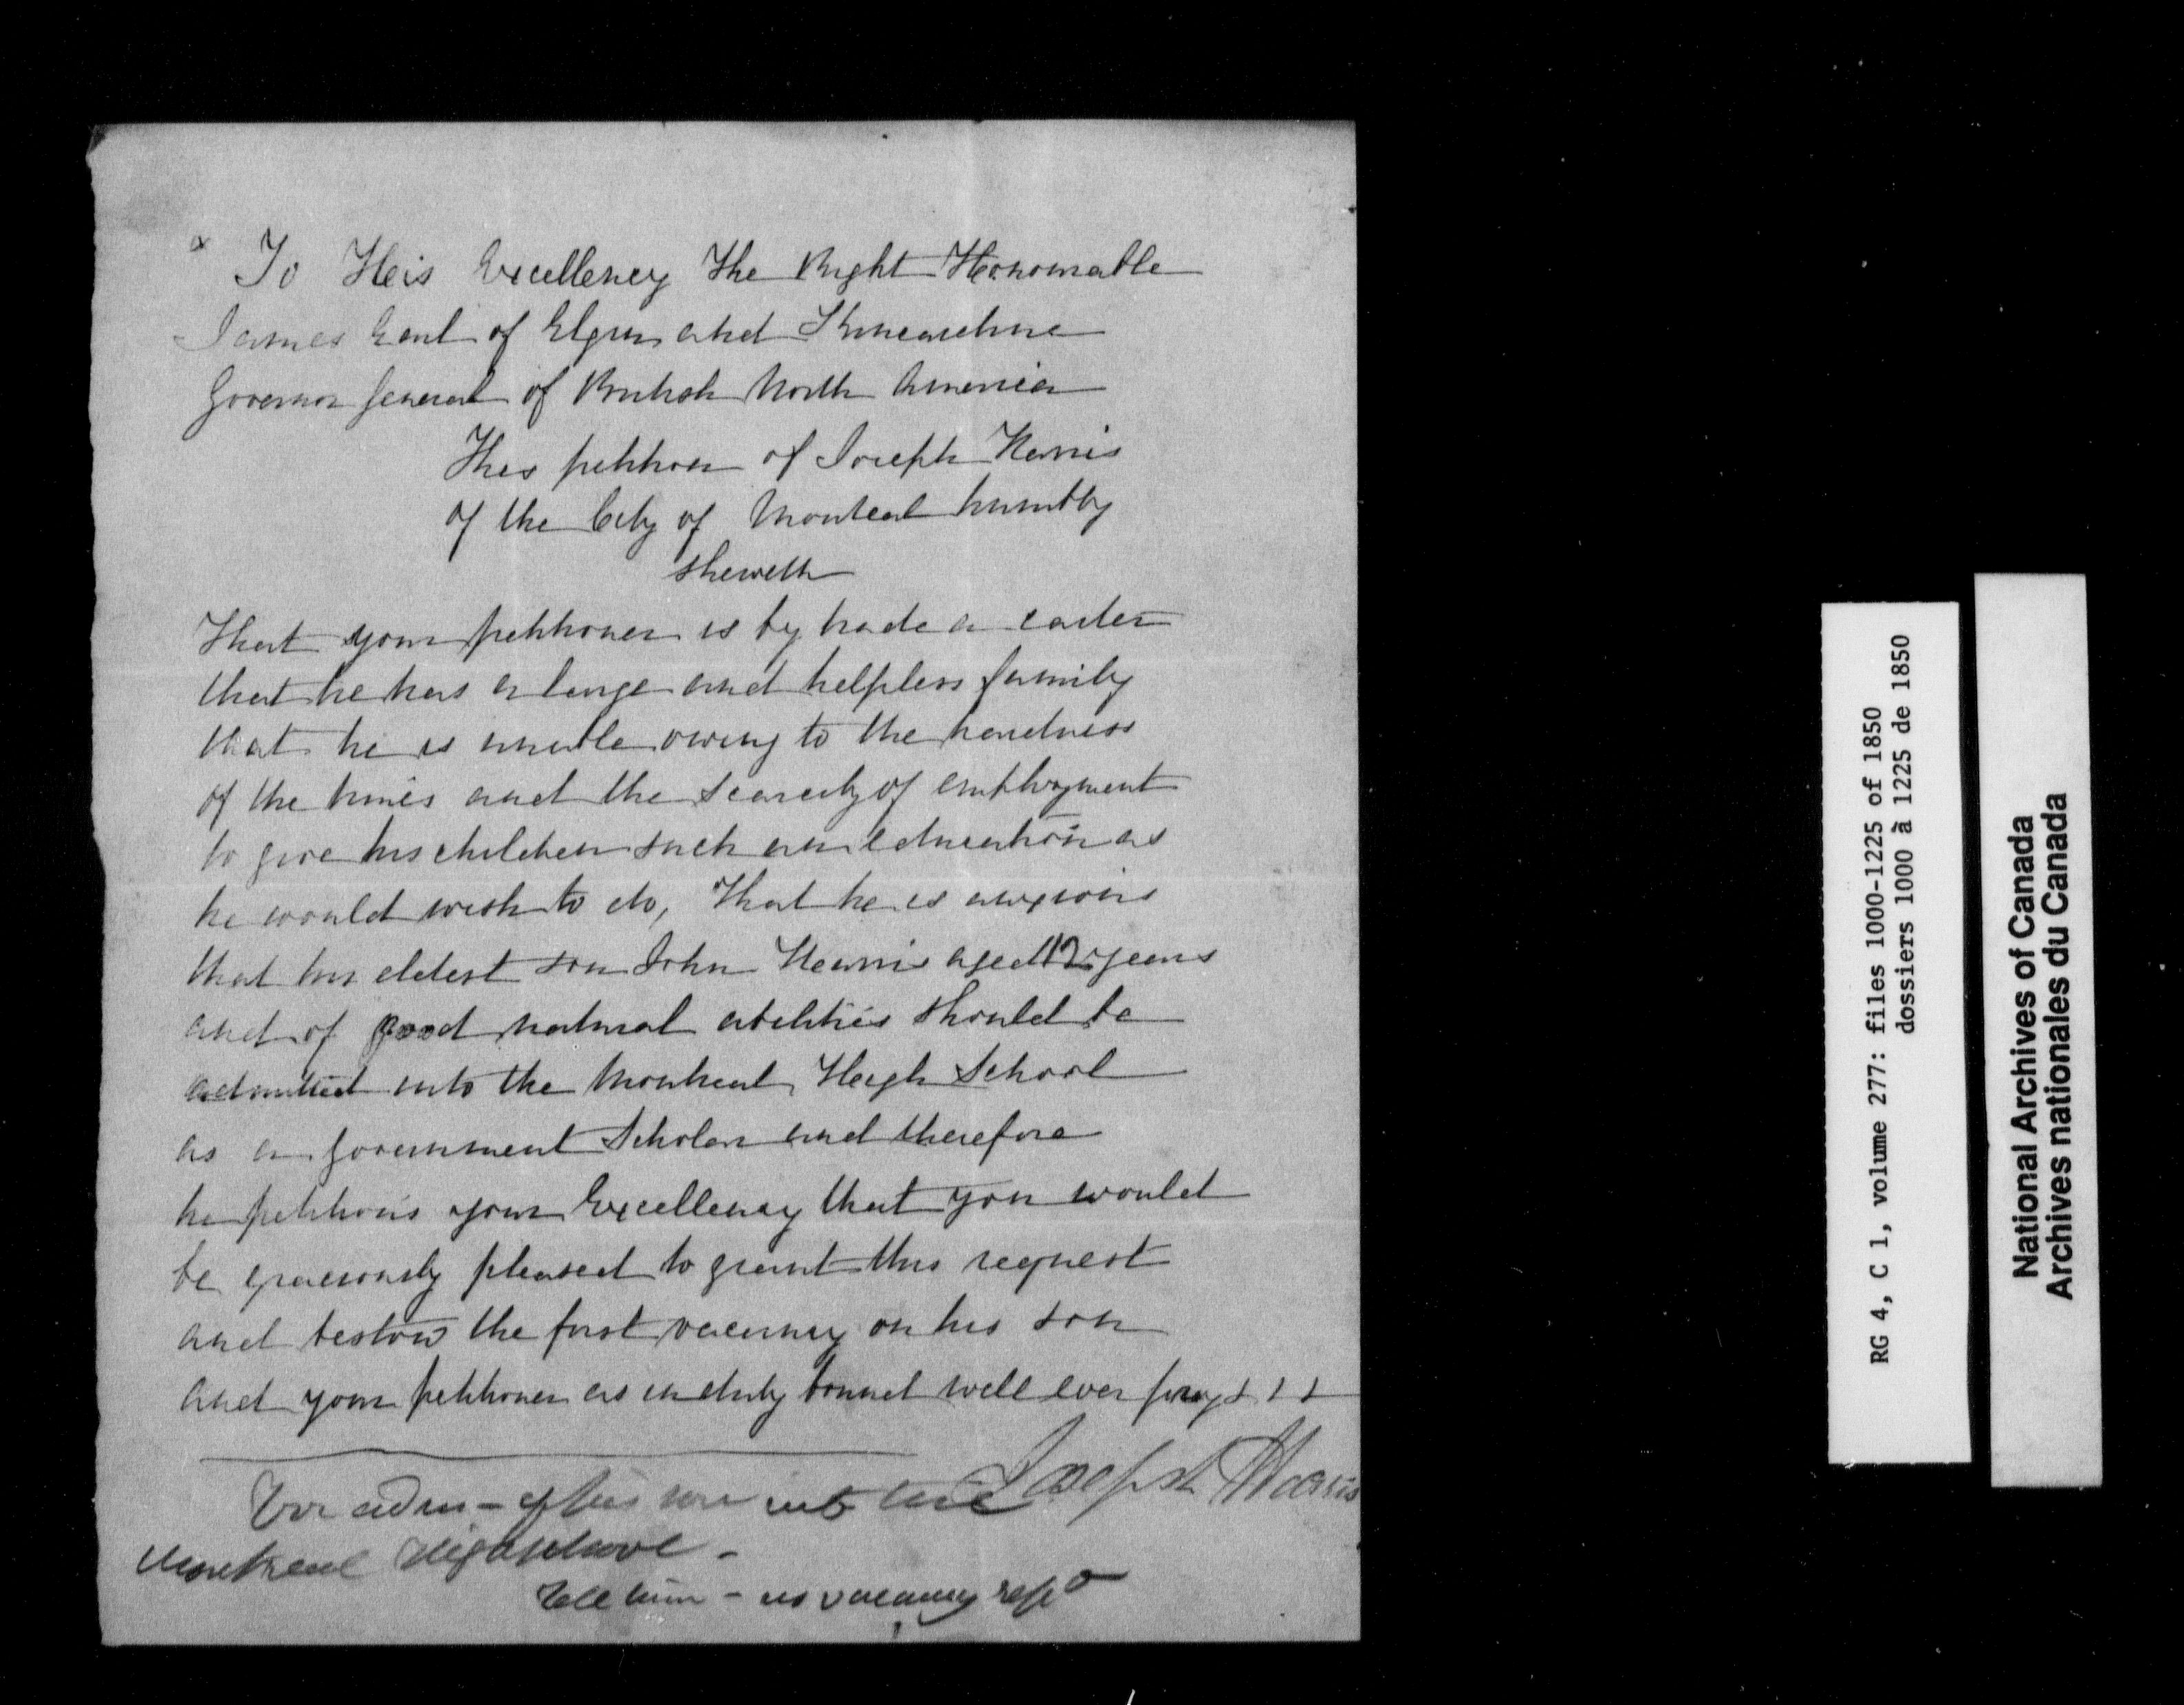 To His Excellency The Right Honourable
James Earl of Elgin and Kincardine
Governor General of British North America
The petition of Joseph Harris
of the City of Montreal humbly
sheweth
That your petitioner is by trade a carter
that he has a large and helpless family
that he is unable owing to the hardness
of the times and the scarcity of employment
to give his children such an education as
he would wish to do, That he is anxious
that his eldest son John Harris aged 12 years
and of good natural abilities should be
admitted into the Montreal High School
as a government Scholar and therefore
he petitions your Excellency that you would
be graciously pleased to grant this request
and bestow the first vacancy on his son
and your petitioner as in duty bound will ever pray
Joseph Harris
For adm- of his son into the
Montreal High School -
Tell him - no vacancy
RG 4, C 1, volume 277: files 1000-1225 of 1850
dossiers 1000 à 1225 de 1850
National Archives of Canada
Archives nationales du Canada